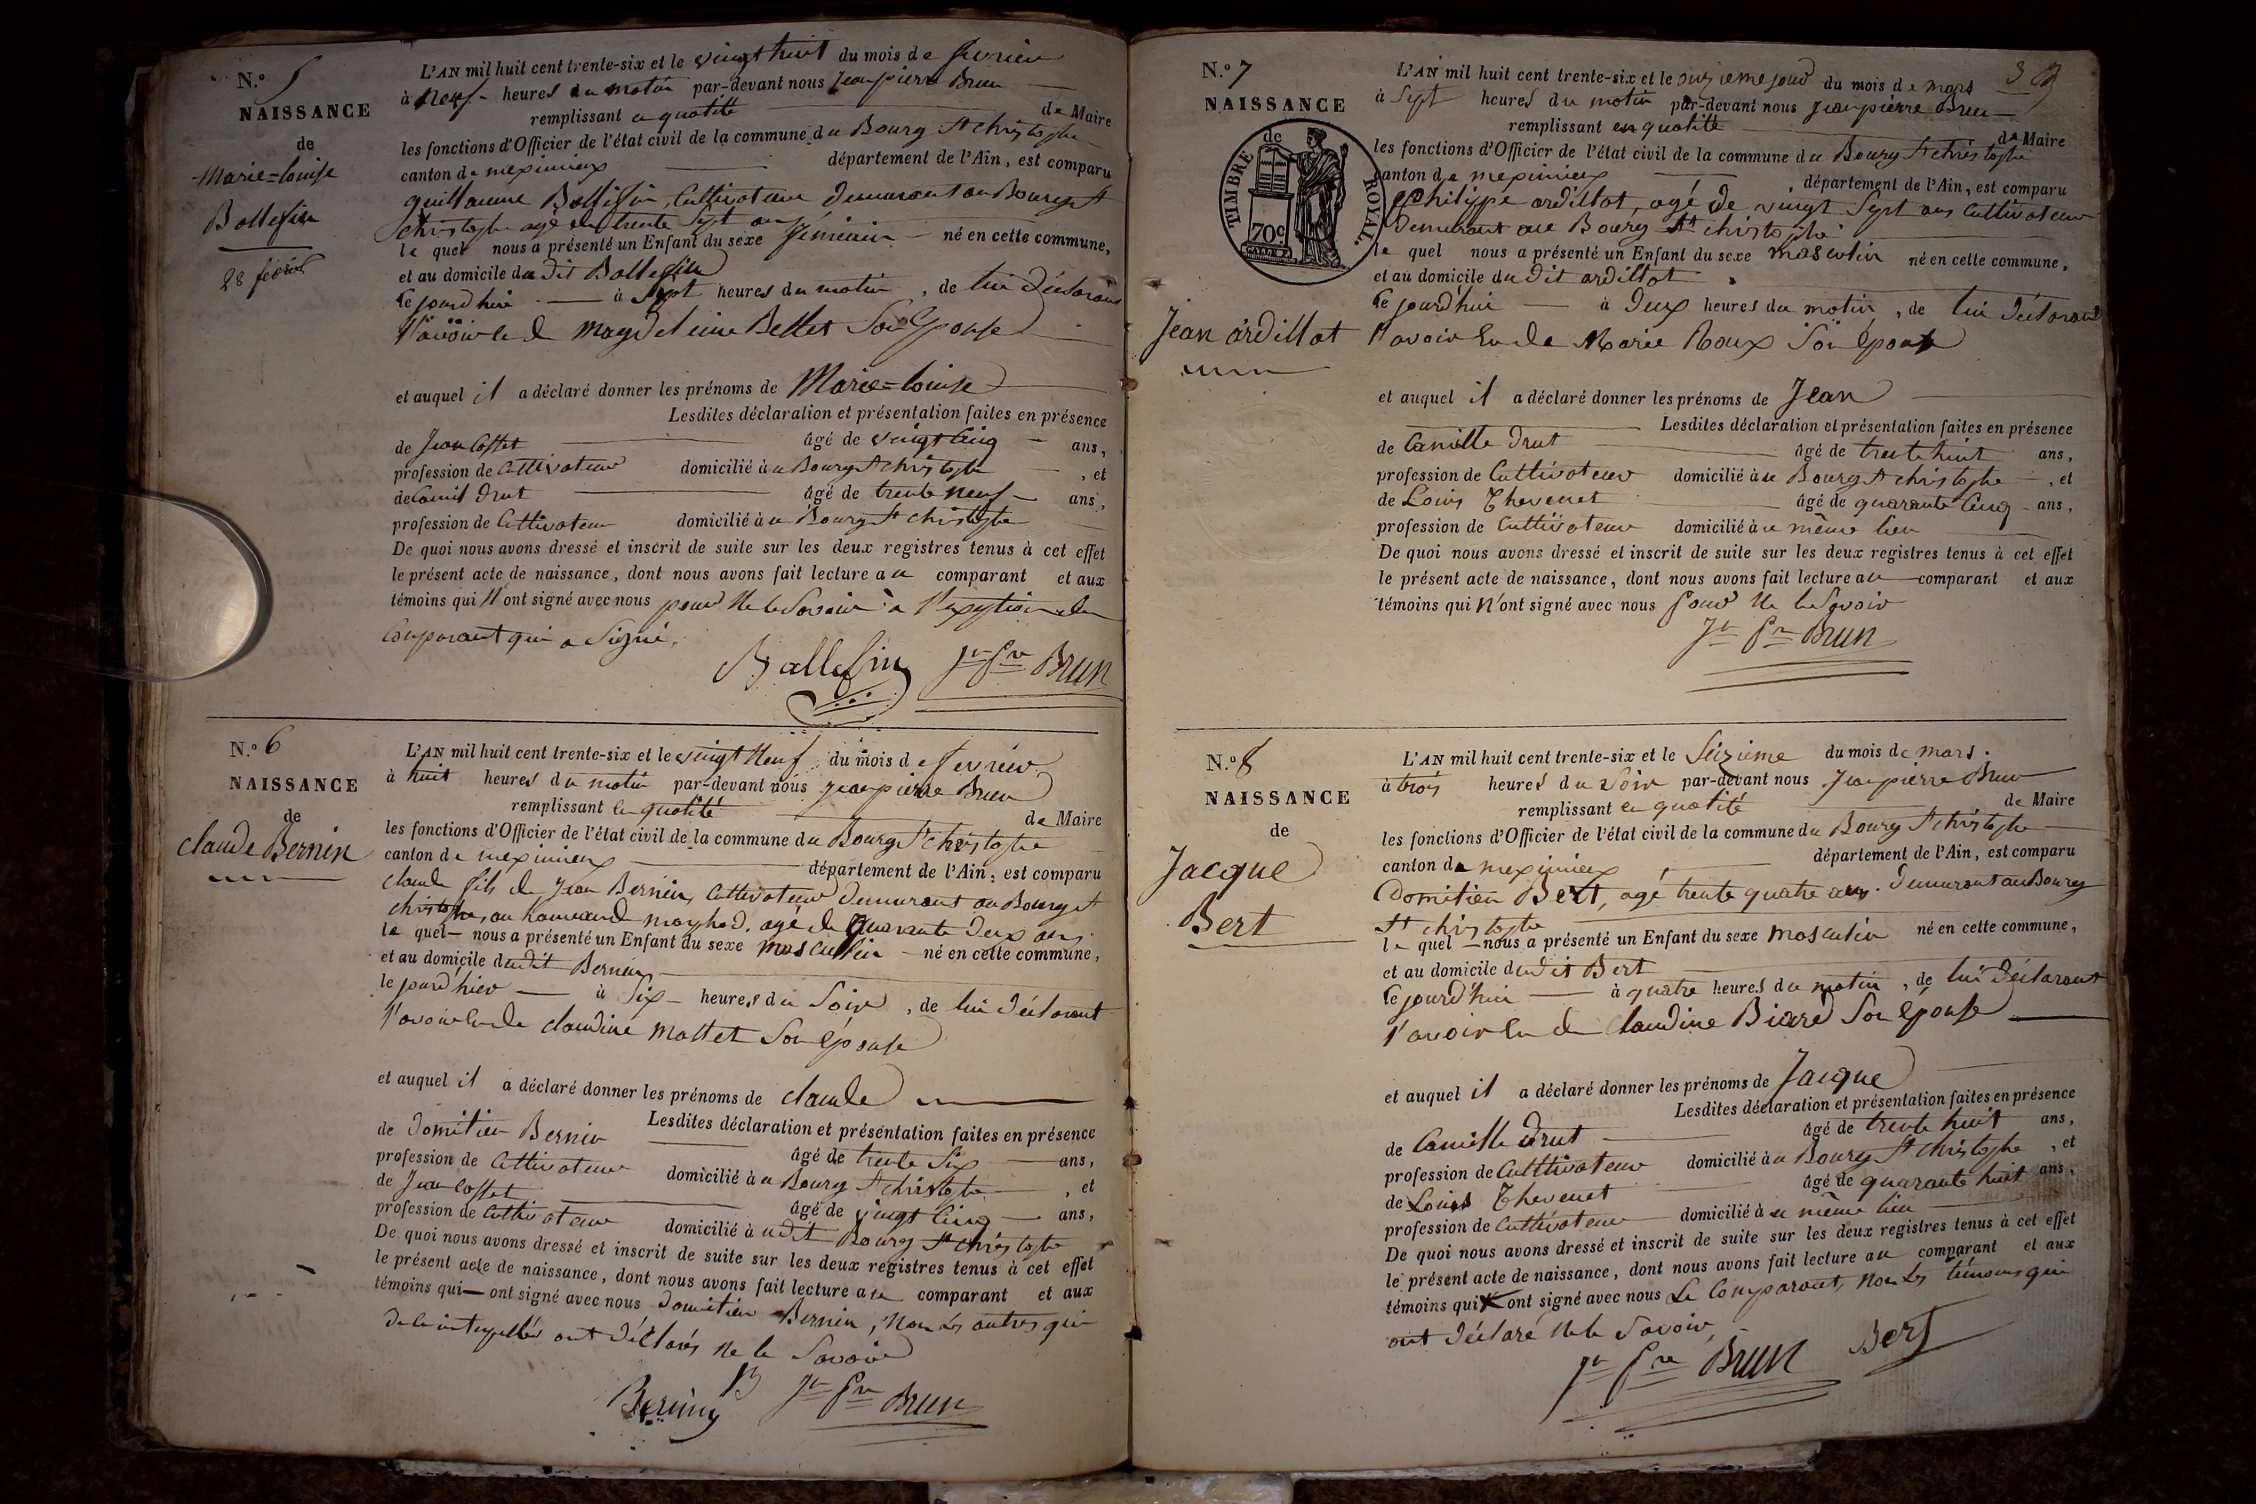 N.º 5
NAISSANCE
de
Marie=louise
Ballefin
28 février
L'AN mil huit cent trente-six et le vingt huit du mois de fevrier
à neuf heures du matin par-devant nous Jean pierre Brun
remplissant en qualité de Maire
les fonctions d'Officier de l'état civil de la commune du Bourg St christophe
canton de meximieux département de l'Ain, est comparu
guillaume Ballefin, Cultivateur demeurant au Bourg St
christophe agé de trente sept ans
le quel nous a présenté un Enfant du sexe féminin né en cette commune,
et au domicile du dit Ballefin
ce jourd'hui à sept heures du matin, de lui déclarant
l'avoir eu de magdeleine Bellet Son Epouse
et auquel il a déclaré donner les prénoms de Marie=louise
Lesdites déclaration et présentation faites en présence
de Jean Cosset âgé de vingt cinq ans,
profession de Cultivateur domicilié au Bourg St christophe, et
de Camil drut âgé de trente neuf ans,
profession de Cultivateur domicilié au Bourg St christophe
De quoi nous avons dressé et inscrit de suite sur les deux registres tenus à cet effet
le présent acte de naissance, dont nous avons fait lecture au comparant et aux
témoins qui n'ont signé avec nous pour ne le Savoir à l'exeption du
Comparant qui a Signé,
Ballefin Jn Pre Brun
N.º 6
NAISSANCE
de
claude Bernin
L'AN mil huit cent trente-six et le vingt neuf du mois de fevrier
à huit heures du matin par-devant nous Jean pierre Brun
remplissant en qualité de Maire
les fonctions d'Officier de l'état civil de la commune du Bourg St christophe
canton de meximieux département de l'Ain, est comparu
claude fils de Jean Bernin, Cultivateur demeurant au Bourg St
christophe, au hameau de agé de quarante deux ans
le quel nous a présenté un Enfant du sexe masculin né en cette commune,
et au domicile dudit Bernin
le jourd'hier à Six heures du Soir, de lui déclarant
l'avoir Eu de claudine Mottet Son épouse
et auquel il a déclaré donner les prénoms de claude
Lesdites déclaration et présentation faites en présence
de Domitien Bernin âgé de trente Six ans,
profession de Cultivateur domicilié au Bourg St christophe, et
de Jean Cosset âgé de vingt Cinq ans,
profession de Cultivateur domicilié au dit Bourg St christophe
De quoi nous avons dressé et inscrit de suite sur les deux registres tenus à cet effet
le présent acte de naissance, dont nous avons fait lecture au comparant et aux
témoins qui ont signé avec nous domitien Bernin, non les autres qui
de ce interpellés ont déclarés ne le Savoir
Bernin B Jn Pre Brun
3
N.º 7
NAISSANCE
de
TIMBRE ROYAL.
70c
Jean ardillat
L'AN mil huit cent trente-six et le onzieme jour du mois de mars
à Sept heures du matin par-devant nous Jean pierre Brun
remplissant en qualité de Maire
les fonctions d'Officier de l'état civil de la commune du Bourg St christophe
canton de meximieux, département de l'Ain, est comparu
Philippe ardillat, agé de vingt Sept ans Cultivateur
demeurant au Bourg St christophe
le quel nous a présenté un Enfant du sexe masculin né en cette commune,
et au domicile du dit ardillat
ce jourd'hui à deux heures du matin, de lui déclarant
l'avoir Eu de Marie Roux Son épouse
et auquel il a déclaré donner les prénoms de Jean
Lesdites déclaration et présentation faites en présence
de Camille drut âgé de trente huit ans,
profession de Cultivateur domicilié au Bourg St christophe, et
de Louis Thevenet âgé de quarante Cinq ans,
profession de Cultivateur domicilié au même lieu
De quoi nous avons dressé et inscrit de suite sur les deux registres tenus à cet effet
le présent acte de naissance, dont nous avons fait lecture au comparant et aux
témoins qui n'ont signé avec nous pour ne le Savoir
Jn Pre Brun
N.º 8
NAISSANCE
de
Jacque
Bert
L'AN mil huit cent trente-six et le Seizieme du mois de mars
à trois heures du Soir par-devant nous Jean pierre Brun
remplissant en qualité de Maire
les fonctions d'Officier de l'état civil de la commune du Bourg St christophe
canton de meximieux département de l'Ain, est comparu
Domitien Bert, agé trente quatre ans demeurant au Bourg
St christophe
le quel nous a présenté un Enfant du sexe masculin né en cette commune,
et au domicile dudit Bert
ce jourd'hui à quatre heures du matin, de lui déclarant
l'avoir Eu de Claudine Biard Son épouse
et auquel il a déclaré donner les prénoms de Jacque
Lesdites déclaration et présentation faites en présence
de Camille drut âgé de trente huit ans,
profession de Cultivateur domicilié au Bourg St christophe, et
de Louis Thevenet âgé de quarante huit ans,
profession de Cultivateur domicilié au même lieu
De quoi nous avons dressé et inscrit de suite sur les deux registres tenus à cet effet
le présent acte de naissance, dont nous avons fait lecture au comparant et aux
témoins qui ont signé avec nous Le Comparant, non les témoins qui
ont déclaré ne le Savoir,
Jn Pre Brun Bert